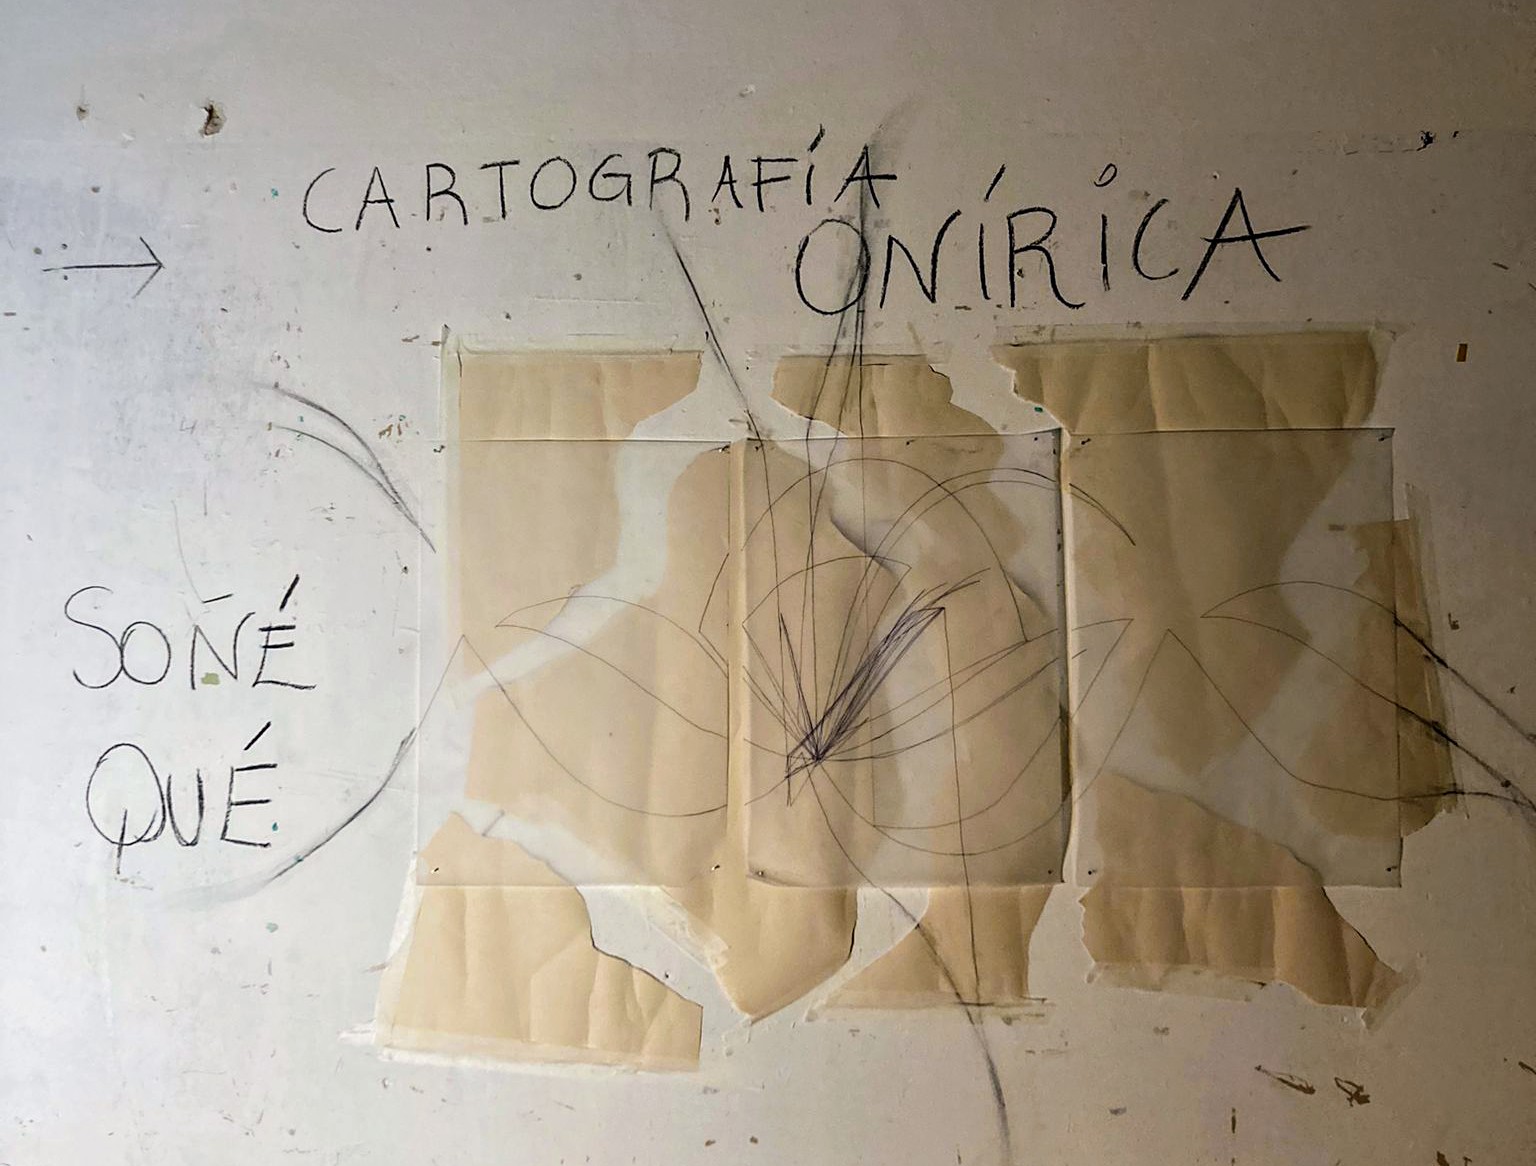 → CARTOGRAFÍA
ONÍRICA
SOÑÉ
QUÉ